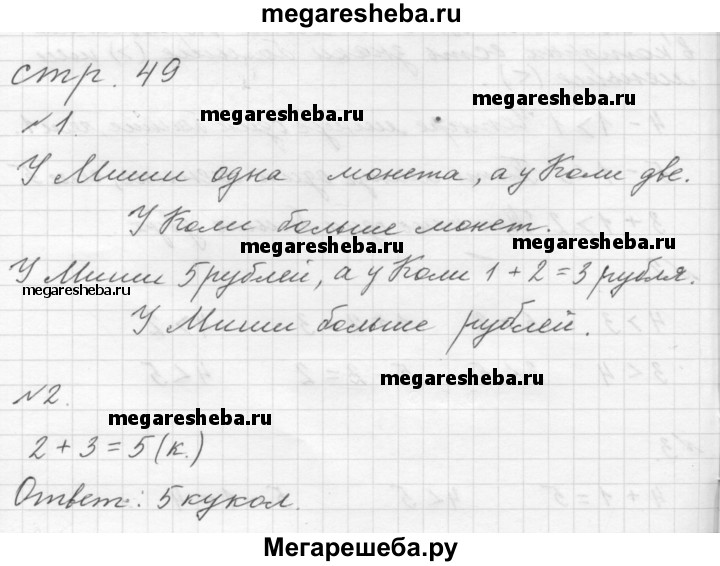 megaresheba.ru
стр. 49
megaresheba.ru
megaresheba.ru
№1.
У Миши одна монета, а у Коли две.
У Коли больше монет.
megaresheba.ru
megaresheba.ru
У Миши 5 рублей, а у Коли 1 + 2 = 3 рубля.
megaresheba.ru
У Миши больше рублей.
megaresheba.ru
megaresheba.ru
№2.
megaresheba.ru
2 + 3 = 5 (к.)
megaresheba.ru
Ответ: 5 кукол.
Мегарешеба.ру